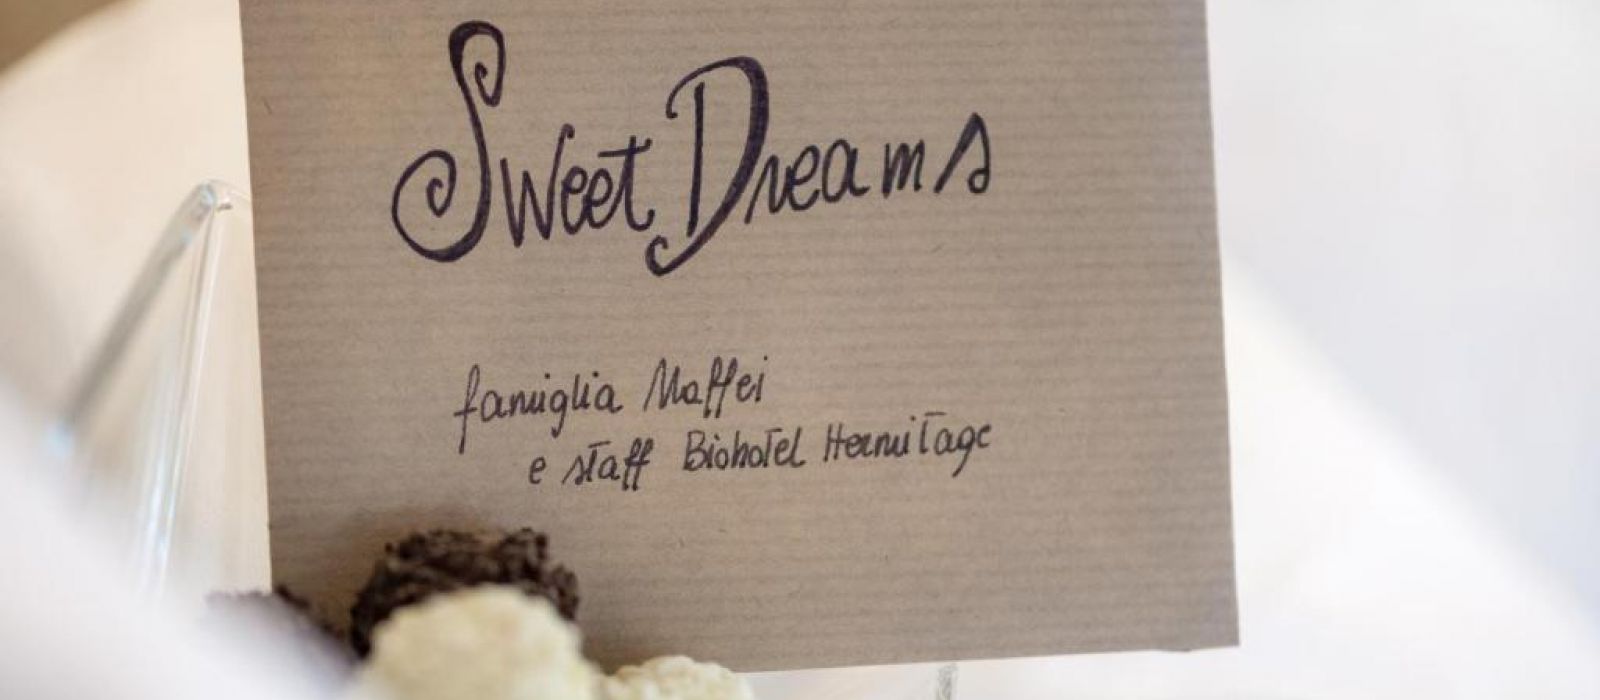 Sweet Dreams
famiglia Maffei
e staff Biohotel Hermitage